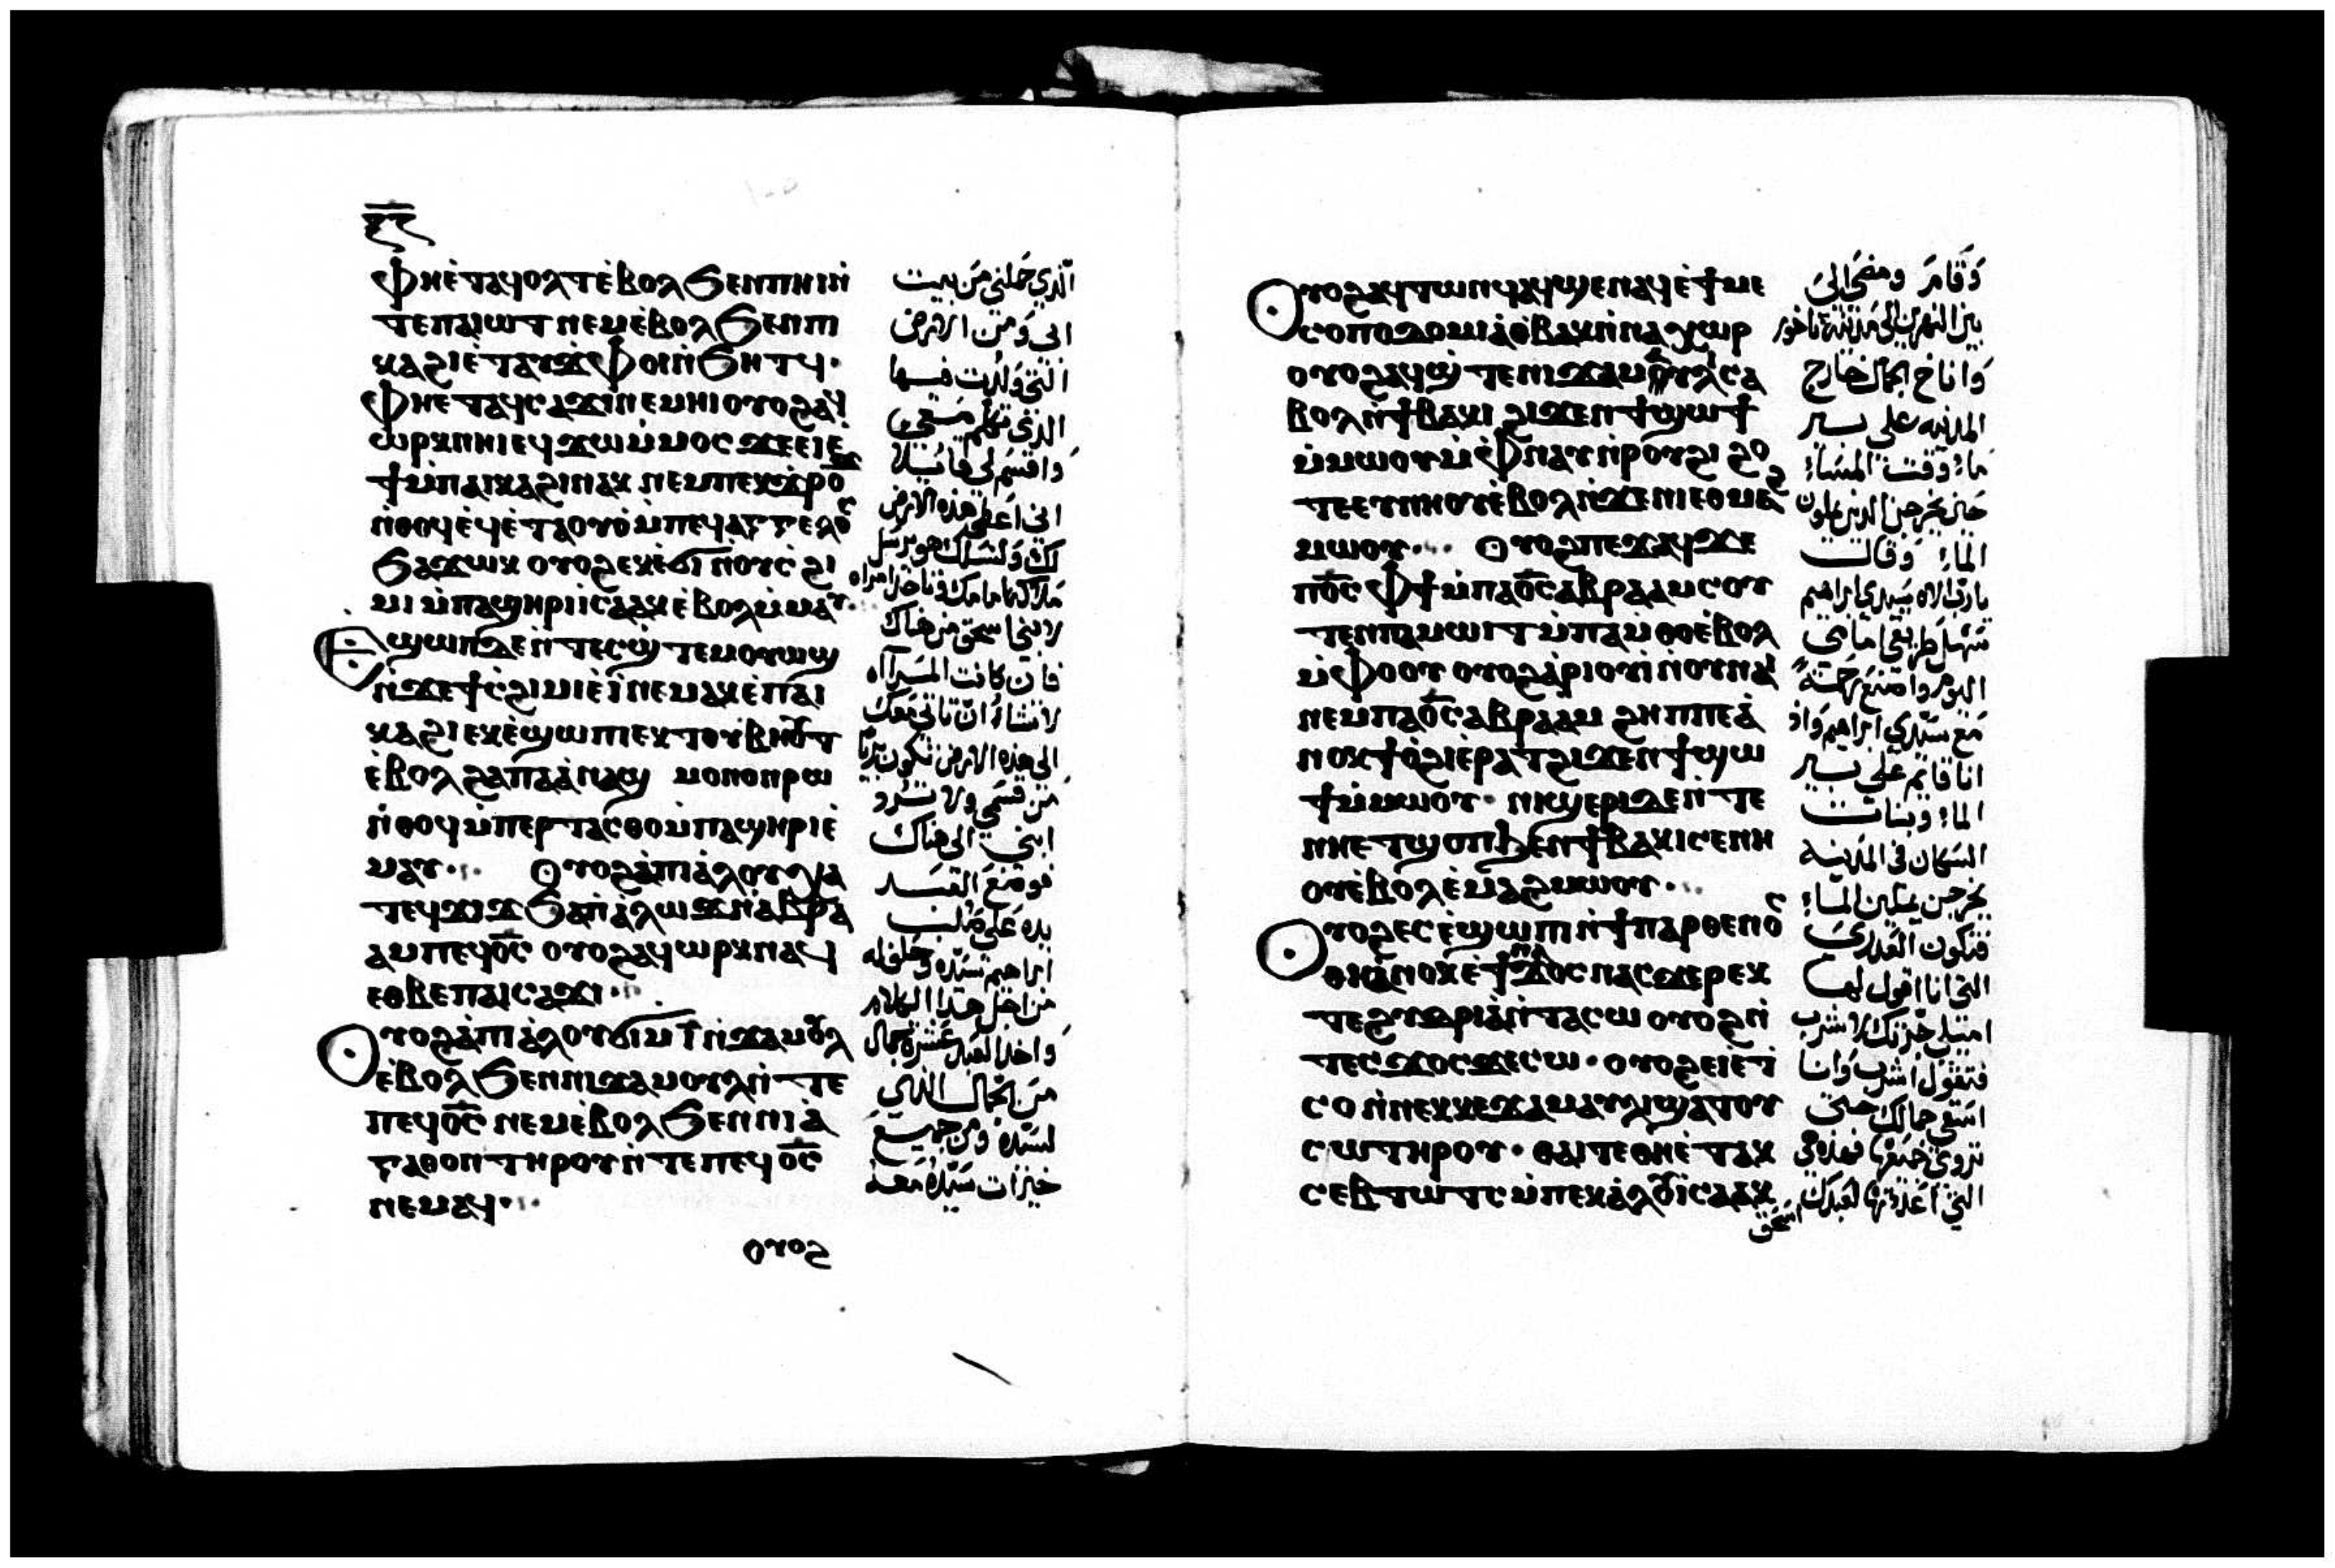 ⲫⲏⲉ̀ⲧⲁϥⲟⲗⲧⲉ̀ⲃⲟⲗϧⲉⲛⲡⲏⲓⲛ̀
ⲧⲉⲡⲁⲓⲱⲧⲛⲉⲙⲉ̀ⲃⲟⲗϧⲉⲛⲡⲓ
ⲕⲁϩⲓⲉ̀ⲧⲁⲩϫⲫⲟⲓⲛ̀ϧⲏⲧϥ·
ⲫⲏⲉⲧⲁϥⲥⲁϫⲓⲛⲉⲙⲏⲓⲟⲩⲟϩⲁϥ
ⲱⲣⲕⲛⲏⲓⲉϥϫⲱⲙ̀ⲙⲟⲥϫⲉⲉⲓⲉ̀
ϯⲙ̀ⲡⲁⲓⲕⲁϩⲓⲛⲁⲕ ⲛⲉⲙⲡⲉⲕϫⲣⲟ
ⲛ̀ⲑⲟϥⲉ̀ϥⲉ̀ⲧⲁⲟⲩⲟ̀ⲙ̀ⲡⲉϥⲁⲅⲅⲉⲗⲟⲥ
ϧⲁϫⲱⲕ ⲟⲩⲟϩⲉⲕⲉ̀ϭⲓⲛ̀ⲟⲩⲥ̀ϩⲓ
ⲙⲓ ⲙ̀ⲡⲁϣⲏⲣⲓⲓⲥⲁⲁⲕⲉ̀ⲃⲟⲗⲙ̀ⲙⲁⲩ
ⲉϣⲱⲡϫⲉⲛ̀ⲧⲉⲥϣ̀ⲧⲉⲙⲟⲩⲱϣ
ⲛ̀ϫⲉϯⲥ̀ϩⲓⲙⲓⲉ̀ⲓ̀ⲛⲉⲙⲁⲕⲉ̀ⲡⲁⲓ
ⲕⲁϩⲓⲉⲕⲉ̀ϣⲱⲡⲓⲉⲕⲧⲟⲩⲃⲏⲟⲩⲧ
ⲉ̀ⲃⲟⲗϩⲁⲡⲁⲁ̀ⲛⲁϣ ⲙⲟⲛⲟⲛⲣⲱ
ⲛ̀ⲑⲟϥⲙ̀ⲡⲉⲣⲧⲁⲥⲑⲟⲙ̀ⲡⲁϣⲏⲣⲓⲉ̀
ⲙⲁⲩ· ⲟⲩⲟϩⲁ̀ⲡⲓⲁ̀ⲗⲟⲩϩⲓⲁ
ⲧⲉϥϫⲓϫϧⲁⲡⲁ̀ⲗⲱϫⲛ̀ⲁⲃⲣⲁ
ⲁⲙⲡⲉϥⲟ̅ⲥ̅ ⲟⲩⲟϩⲁϥⲱⲣⲕⲛⲁϥ
ⲉⲑⲃⲉⲡⲁⲓⲥⲁϫⲓ·
ⲟⲩⲟϩⲁ̀ⲡⲓⲁ̀ⲗⲟⲩϭⲓⲙ̅ⲓ̅ⲛ̀ϫⲁⲙⲟⲩⲗ
ⲉ̀ⲃⲟⲗϧⲉⲛⲛⲓϫⲁⲙⲟⲩⲗⲛ̀ⲧⲉ
ⲡⲉϥⲟ̅ⲥ̅ ⲛⲉⲙⲉ̀ⲃⲟⲗϧⲉⲛⲛⲓⲁ̀
ⲅⲁⲑⲟⲛⲧⲏⲣⲟⲩⲛ̀ⲧⲉⲡⲉϥⲟ̅ⲥ̅
ⲛⲉⲙⲁϥ·
ⲟⲩⲟϩ
الذي حملني من بيت
ابى ومن الارض
التي ولدت فيها
الذي تكلم معي
واقسم لي قائلا
اني اعطي هذه الارض
لك ولنسلك هو يرسل
ملاكه امامك وتاخذ امراه
لابني اسحق من هناك
فان كانت المراه
لا تشاء ان تاتي معك
الى هذه الارض تكون بريا
من قسمي ولا ترد
ابني الى هناك
فوضع العبد
يده على صلب
ابراهيم سيده وحلف له
من اجل هذا الكلام
واخذ العبد عشرة جمال
من الجمال الذي
لسيده ومن جميع
خيرات سيده معه
ⲟⲩⲟϩⲁϥⲧⲱⲛϥⲁϥϣⲉⲛⲁϥⲉ̀ϯⲙⲉ
ⲥⲟⲡⲟⲇⲟⲙⲓⲁ̀ⲉ̀ⲃⲁⲕⲓⲛ̀ⲛⲁⲭⲱⲣ
ⲟⲩⲟϩⲁϥϣ̀ⲧⲉⲛⲓϫⲁⲙⲟⲩⲗⲥⲁ
ⲃⲟⲗⲛ̀ϯⲃⲁⲕⲓ ϩⲓϫⲉⲛϯϣⲱϯ
ⲙ̀ⲙⲱⲟⲩⲙ̀ⲫⲛⲁⲩⲛ̀ⲣⲟⲩϩⲓ ϩⲟ
ⲧⲉⲉⲩⲛⲏⲟⲩⲉ̀ⲃⲟⲗⲛ̀ϫⲉⲛⲓⲉⲑⲙⲉϩ
ⲙⲱⲟⲩ· ⲟⲩⲟϩⲡⲉϫⲁϥϫⲉ
ⲡⲟ̅ⲥ̅ ⲫϯⲙ̀ⲡⲁⲟ̅ⲥ̅ⲁⲃⲣⲁⲁⲙⲥⲟⲩ
ⲧⲉⲛⲡⲁⲙⲱⲓⲧⲙ̀ⲡⲁⲙⲑⲟⲉ̀ⲃⲟⲗ
ⲙ̀ⲫⲟⲟⲩ ⲟⲩⲟϩⲁ̀ⲣⲓⲟⲩⲓ̀ⲛ̀ⲟⲩⲛⲁⲓ
ⲛⲉⲙⲡⲁⲟ̅ⲥ̅ⲁⲃⲣⲁⲁⲙ ϩⲏⲡⲡⲉⲁ̀
ⲛⲟⲕϯⲟ̀ϩⲓⲉ̀ⲣⲁⲧϩⲓϫⲉⲛϯϣⲱ
ϯⲙ̀ⲙⲱⲟⲩ· ⲛⲓϣⲉⲣⲓⲇⲉⲛ̀ⲧⲉ
ⲛⲏⲉⲧϣⲟⲡϧⲉⲛϯⲃⲁⲕⲓⲥⲉⲛⲏ
ⲟⲩⲉ̀ⲃⲟⲗⲉ̀ⲙⲁϩⲙⲱⲟⲩ·
ⲟⲩⲟϩⲉⲥⲉ̀ϣⲱⲡⲓⲛ̀ϯⲡⲁⲣⲑⲉⲛⲟⲥ
ⲑⲏⲁ̀ⲛⲟⲕⲉ̀ϯⲛⲁϫⲟⲥⲛⲁⲥϫⲉⲣⲉⲕ
ⲧⲉϩⲩⲇⲣⲓⲁ̀ⲛ̀ⲧⲁⲥⲱ ⲟⲩⲟϩⲛ̀
ⲧⲉⲥϫⲟⲥϫⲉⲥⲱ· ⲟⲩⲟϩⲉⲓⲉ̀ⲧ̀
ⲥⲟⲛ̀ⲛⲉⲕⲕⲉϫⲁⲙⲁⲩⲗⲓϣⲁⲧⲟⲩ
ⲥⲱⲧⲏⲣⲟⲩ· ⲑⲁⲓⲧⲉⲑⲏⲉ̀ⲧⲁⲕ
ⲥⲉⲃⲧⲱⲧⲥⲙ̀ⲡⲉⲕⲁ̀ⲗⲟⲩⲓ̀ⲥⲁⲁⲕ
وقام ومضى الى
بين النهرين الى مدينة ناخور
واناخ الجمال خارج
المدينه على بير
ماء وقت المساء
حين يخرجن الذين يملون
الماء وقالت
يارب الاه سيدي ابراهيم
سهل طريقي امامي
اليوم واصنع رحمة
مع سيدي ابراهيم واذ
انا قايم على بير
الماء وبنات
السكان في المدينه
يخرجن يملين الماء
فتكون العذرى
التي انا اقول لها
اميلي جرتك لاشرب
فتقول اشرب وانا
اسقي جمالك حتى
تروي جميعها فهذه هي
التي اعددتها لعبدك
اسحق